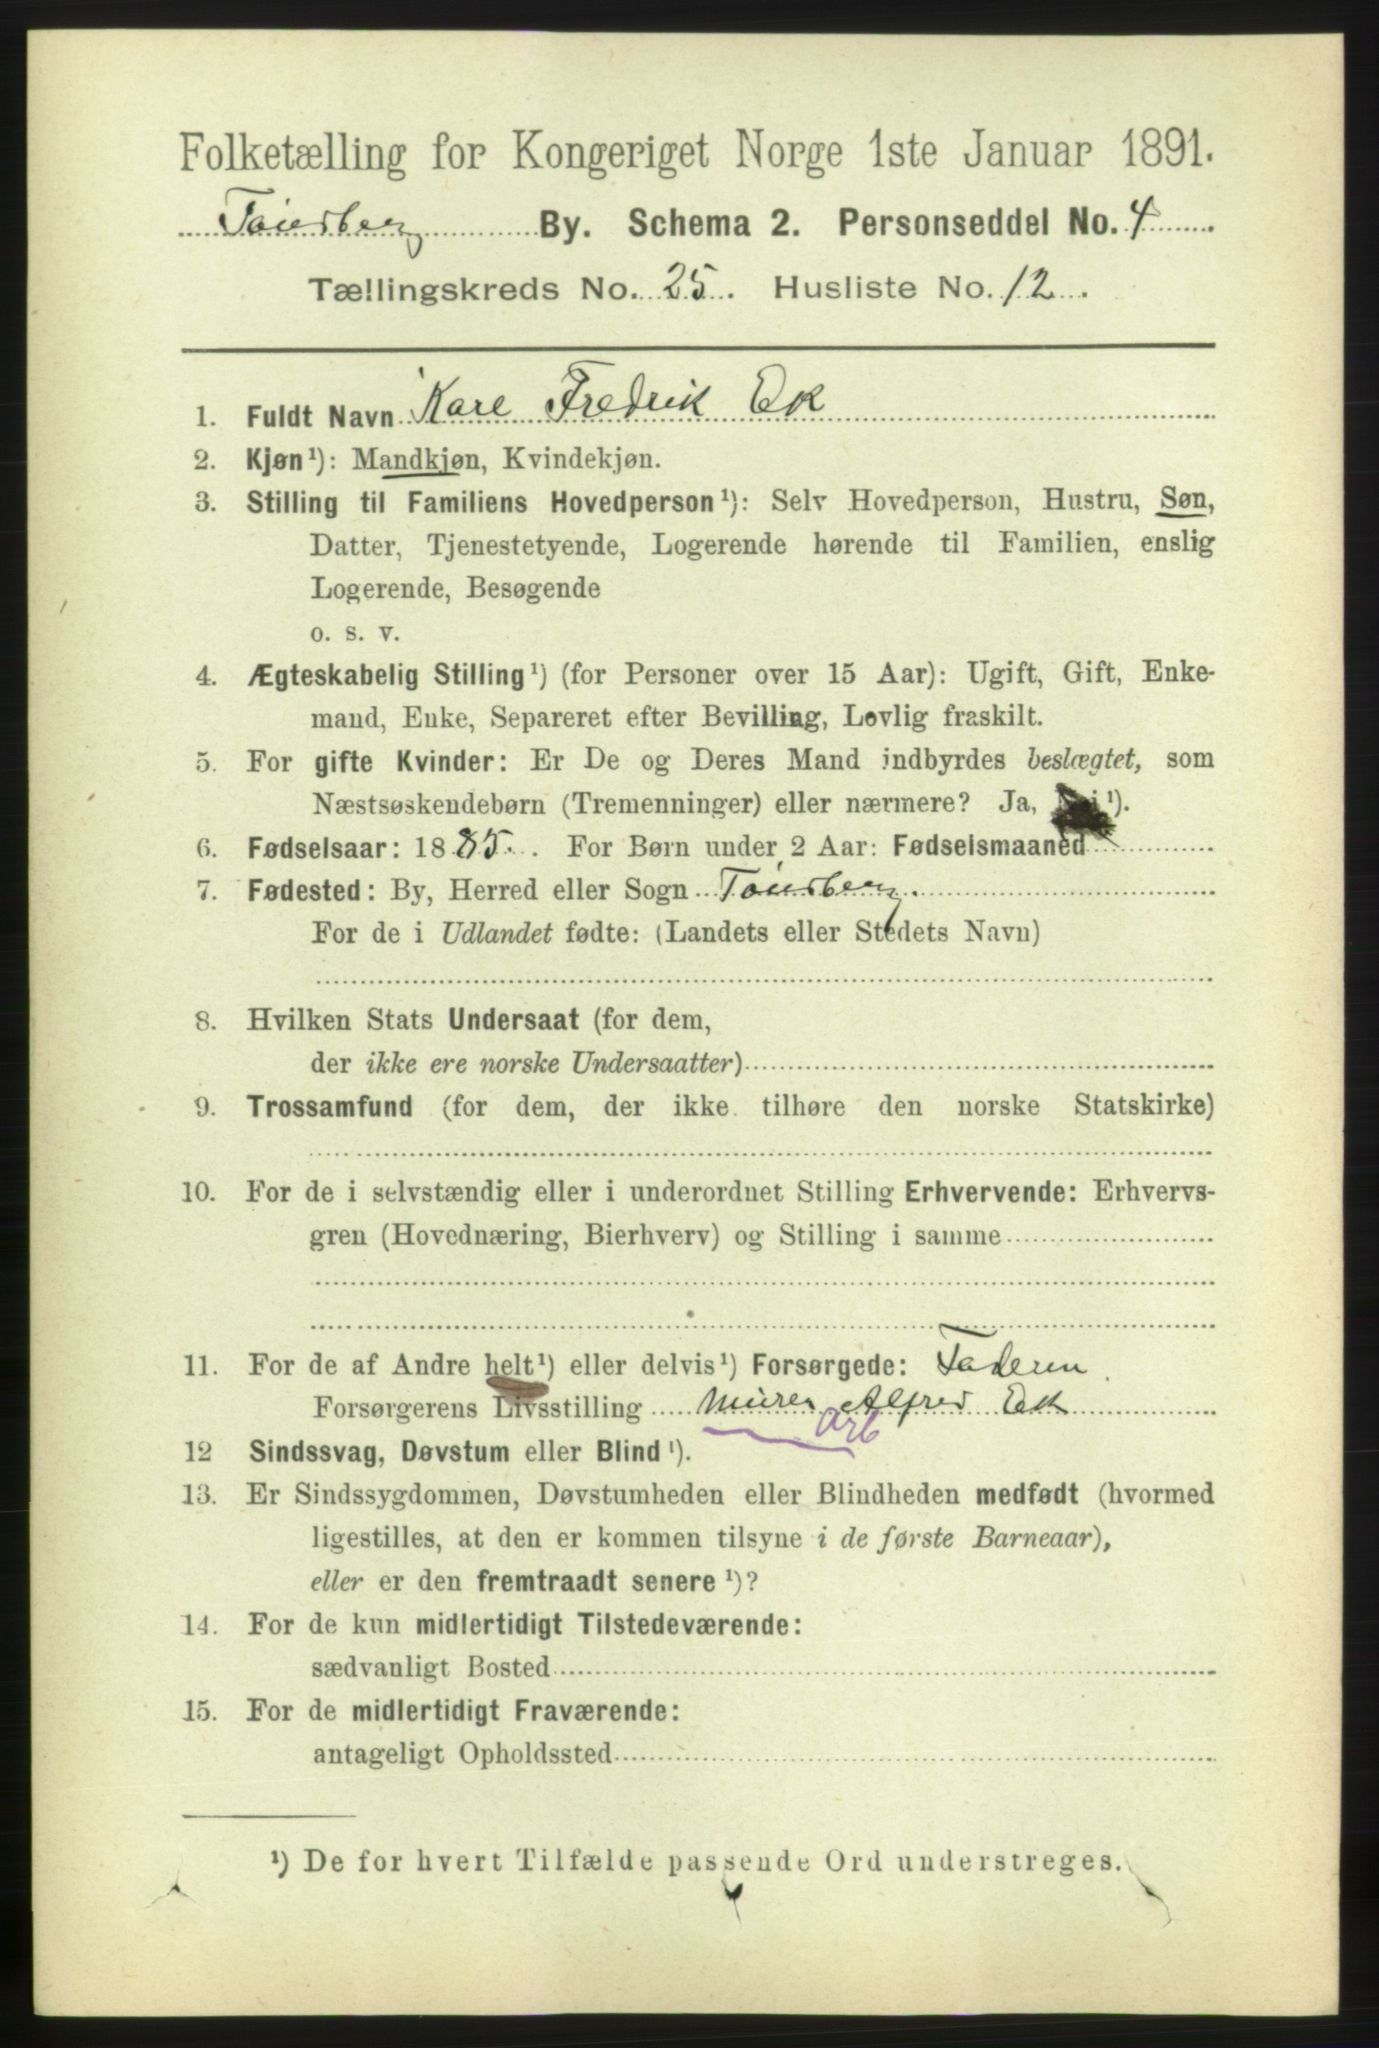 Folketælling for Kongeriget Norge 1ste Januar 1891.
Tønsberg By. Schema 2. Personseddel No. 4
Tællingskreds No. 25. Husliste No. 12.
1. Fuldt Navn Karl Fredrik Ek
2. Kjøn¹): Mandkjøn, Kvindekjøn.
3. Stilling til Familiens Hovedperson¹): Selv Hovedperson, Hustru, Søn,
Datter, Tjenestetyende, Logerende hørende til Familien, enslig
Logerende, Besøgende
o. s. v.
4. Ægteskabelig Stilling¹) (for Personer over 15 Aar): Ugift, Gift, Enke-
mand, Enke, Separeret efter Bevilling, Lovlig fraskilt.
5. For gifte Kvinder: Er De og Deres Mand indbyrdes beslægtet, som
Næstsøskendebørn (Tremenninger) eller nærmere? Ja, Nei¹).
6. Fødselsaar: 1885. For Børn under 2 Aar: Fødselsmaaned
7. Fødested: By, Herred eller Sogn Tønsberg.
For de i Udlandet fødte: (Landets eller Stedets Navn)
8. Hvilken Stats Undersaat (for dem,
der ikke ere norske Undersaatter)
9. Trossamfund (for dem, der ikke tilhøre den norske Statskirke)
10. For de i selvstændig eller i underordnet Stilling Erhvervende: Erhvervs-
gren (Hovednæring, Bierhverv) og Stilling i samme
11. For de af Andre helt¹) eller delvis¹) Forsørgede: Faderen
Forsørgerens Livsstilling Murer Alfred Ek
arb
12 Sindssvag, Døvstum eller Blind¹).
13. Er Sindssygdommen, Døvstumheden eller Blindheden medfødt (hvormed
ligestilles, at den er kommen tilsyne i de første Barneaar),
eller er den fremtraadt senere¹)?
14. For de kun midlertidigt Tilstedeværende:
sædvanligt Bosted
15. For de midlertidigt Fraværende:
antageligt Opholdssted
¹) De for hvert Tilfælde passende Ord understreges.